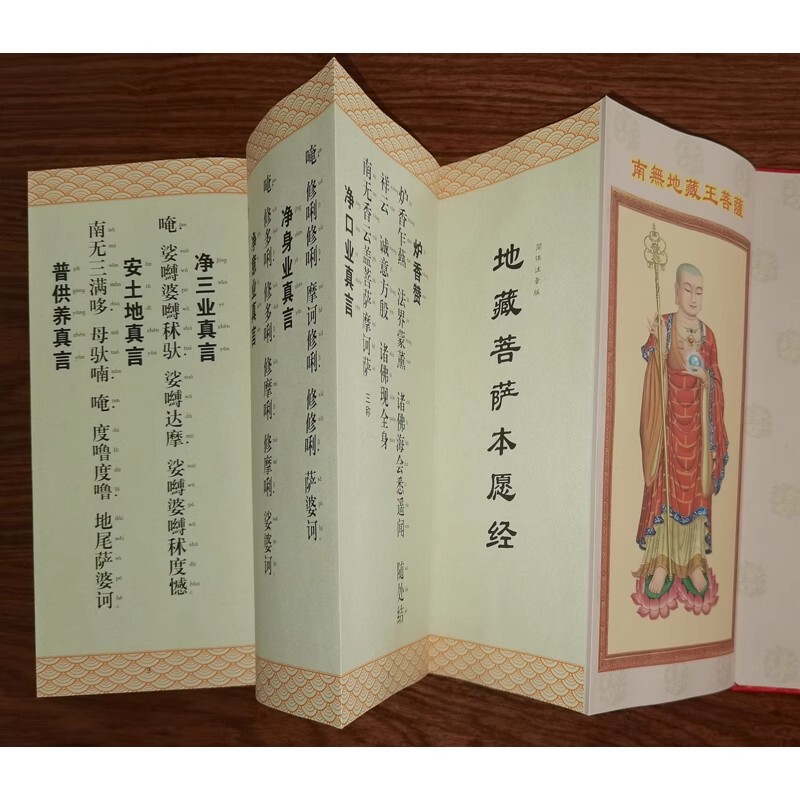 南無地藏王菩薩
简体注音版
地藏菩萨本愿经
炉香赞
炉香乍热 法界蒙薰 诸佛海会悉遥闻 随处结
祥云 诚意方殷 诸佛现全身
南无香云盖菩萨摩诃萨 三称
净口业真言
唵 修唎修唎 摩诃修唎 修修唎 萨婆诃
净身业真言
唵 修多唎 修多唎 修摩唎 修摩唎 娑婆诃
净意业真言
净三业真言
唵 娑嚩婆嚩秫驮 娑嚩达摩 娑嚩婆嚩秫度憾
安土地真言
南无三满哆 母驮喃 唵 度噜度噜 地尾萨婆诃
普供养真言
3